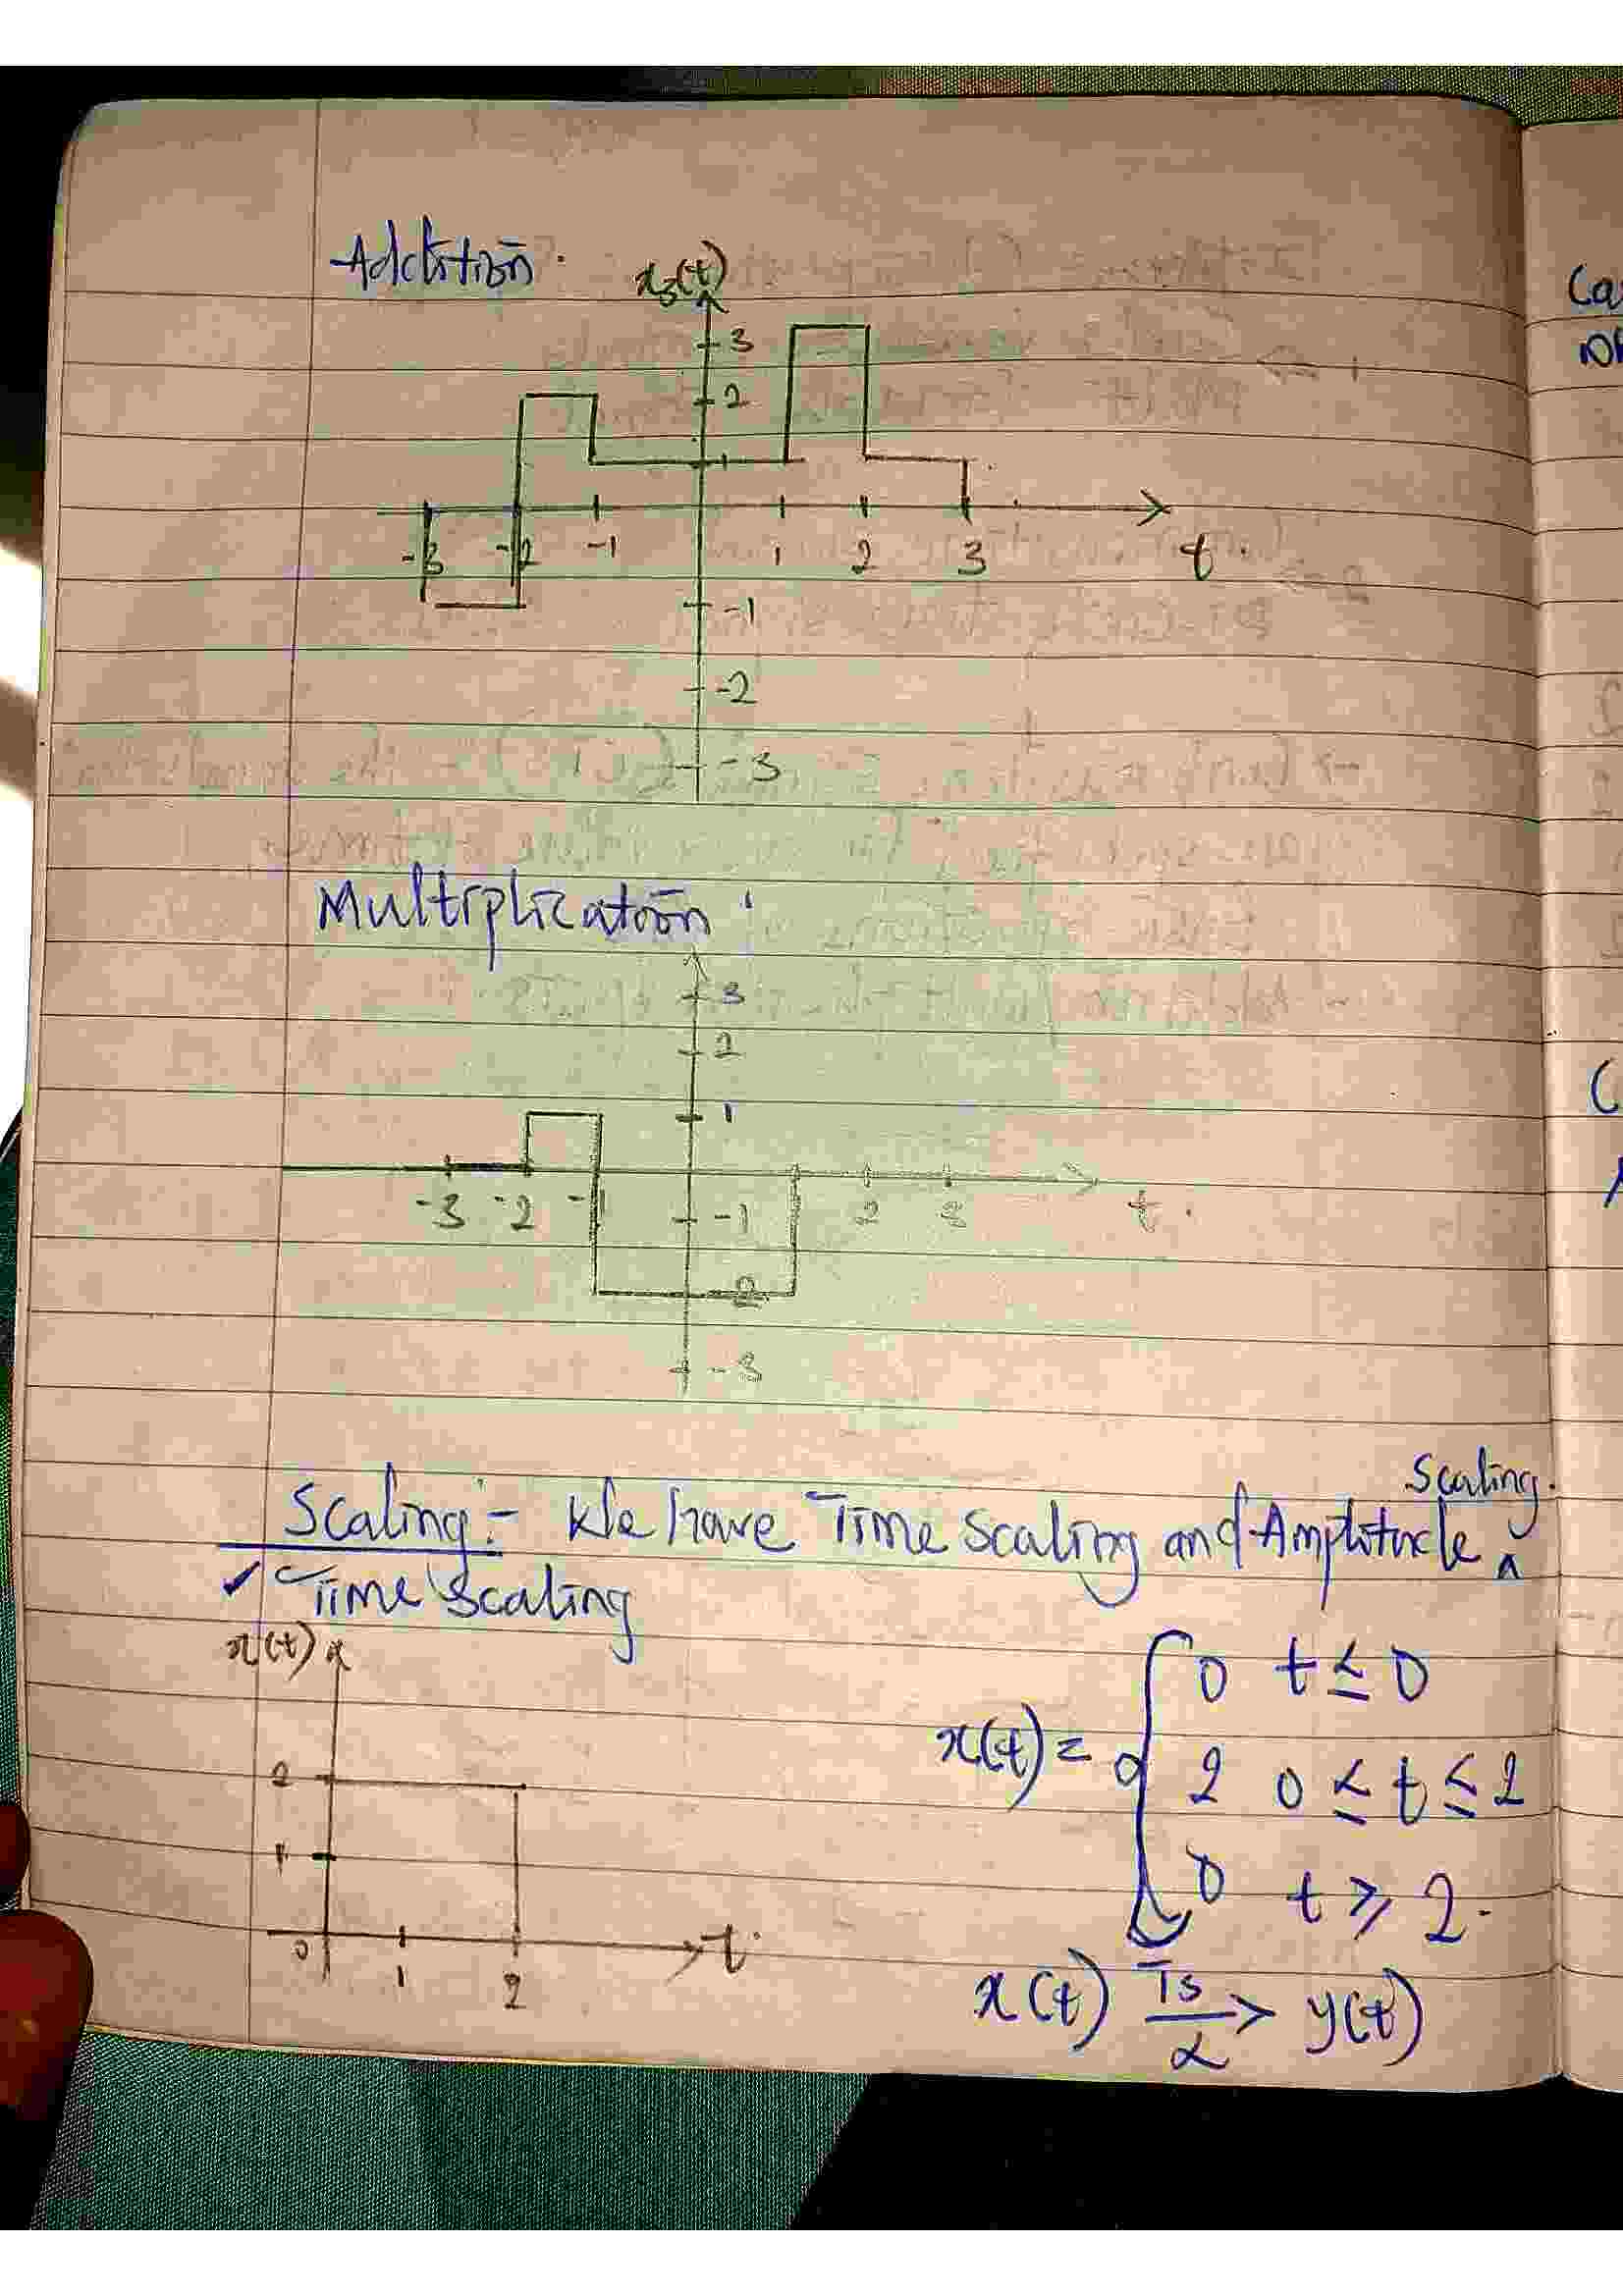 Addition.
x₃(t)
3
2
1
-3 -2 -1 1 2 3 t.
-1
-2
-3
Multiplication:
3
2
1
-3 -2 -1 2 3 t.
-1
-2
-3
Scaling.
Scaling:- We have Time Scaling and Amplitude ^
✓ Time Scaling
x(t)
2
1
0 1 2 t.
x(t) = { 0 t ≤ 0
2 0 ≤ t ≤ 2
0 t ≥ 2.
x(t) Ts/α > y(t)